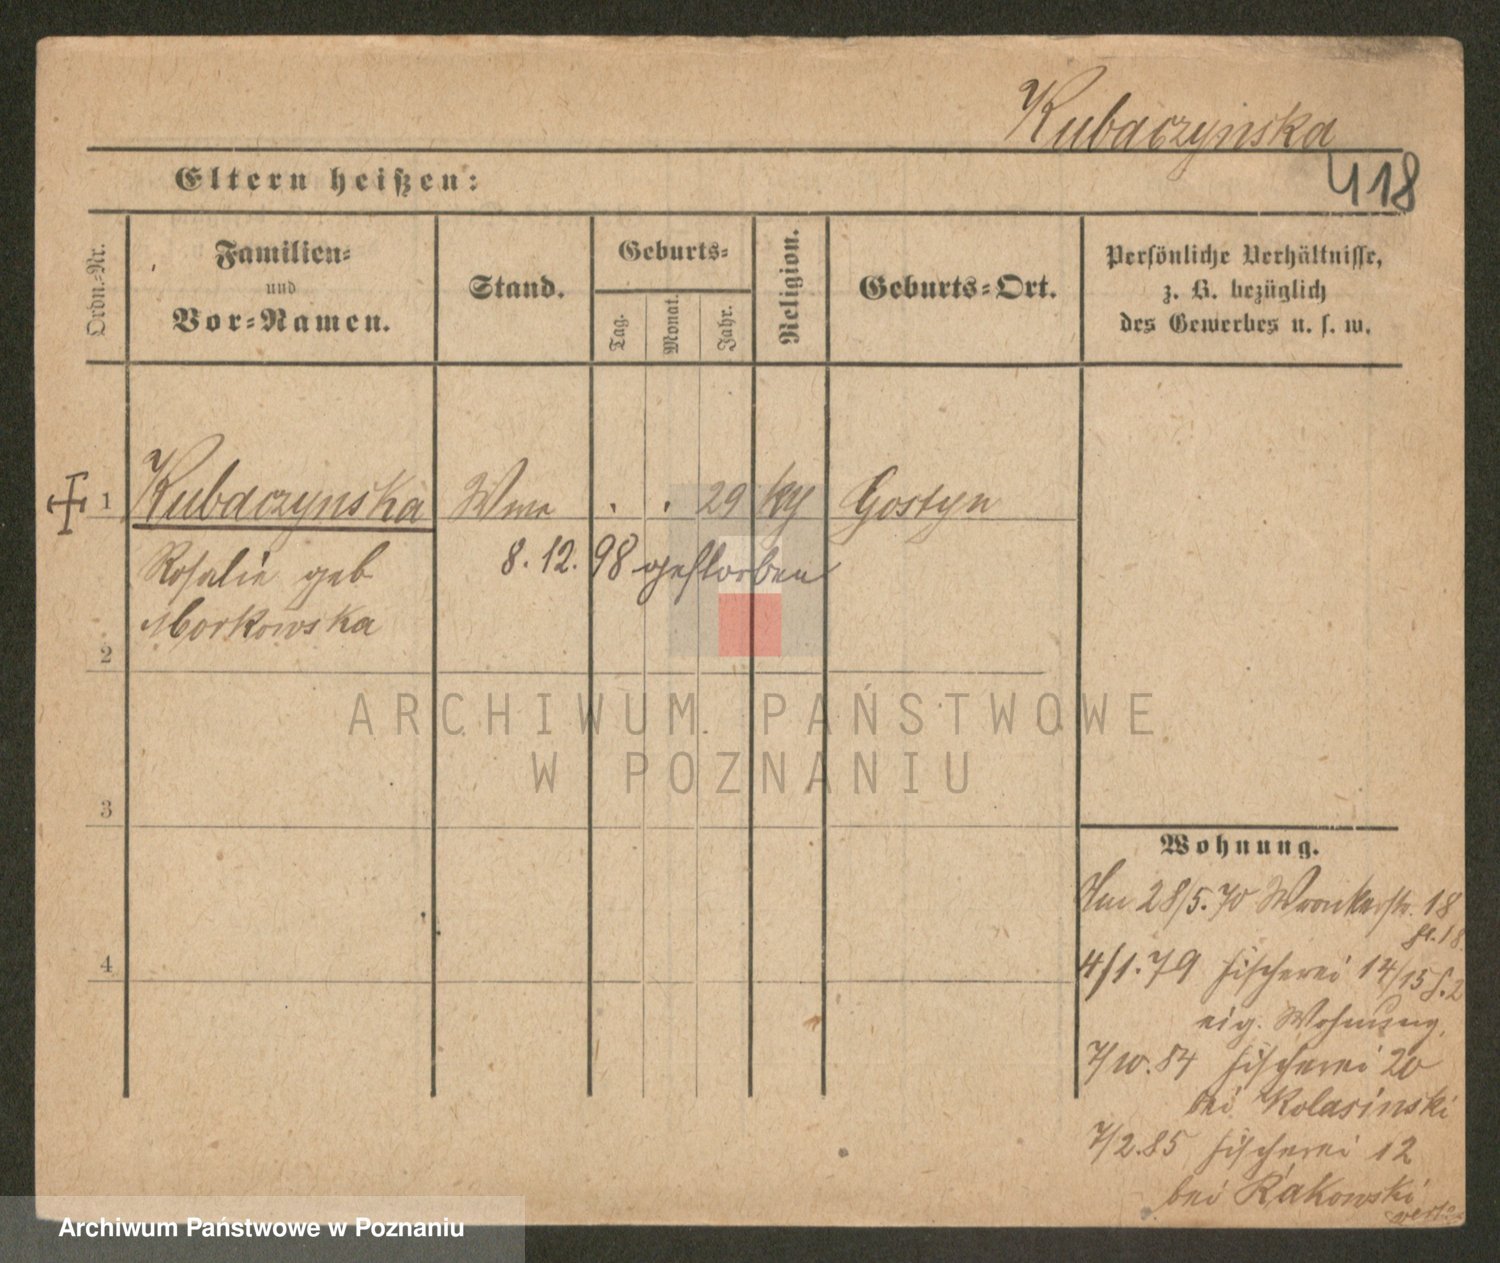 Kubaczynska
418
Eltern heißen:
Ordn.-Nr.
Familien-
und
Vor-Namen.
Stand.
Geburts-
Tag.
Monat.
Jahr.
Religion.
Geburts-Ort.
Persönliche Verhältnisse,
z. B. bezüglich
des Gewerbes u. s. w.
1 Kubaczynska Wwe . . 29 ky Gostyn
Rosalie geb
8. 12. 98 gestorben
Morkowska
2
3
4
ARCHIWUM PAŃSTWOWE
W POZNANIU
Wohnung.
28/5.70 Wronkerstr. 18
4/1.79 Fischerei 14/15
eig. Wohnung,
7/10.84 Fischerei 20
bei Kolasinski
7/2.85 Fischerei 12
bei Rakowski
Archiwum Państwowe w Poznaniu